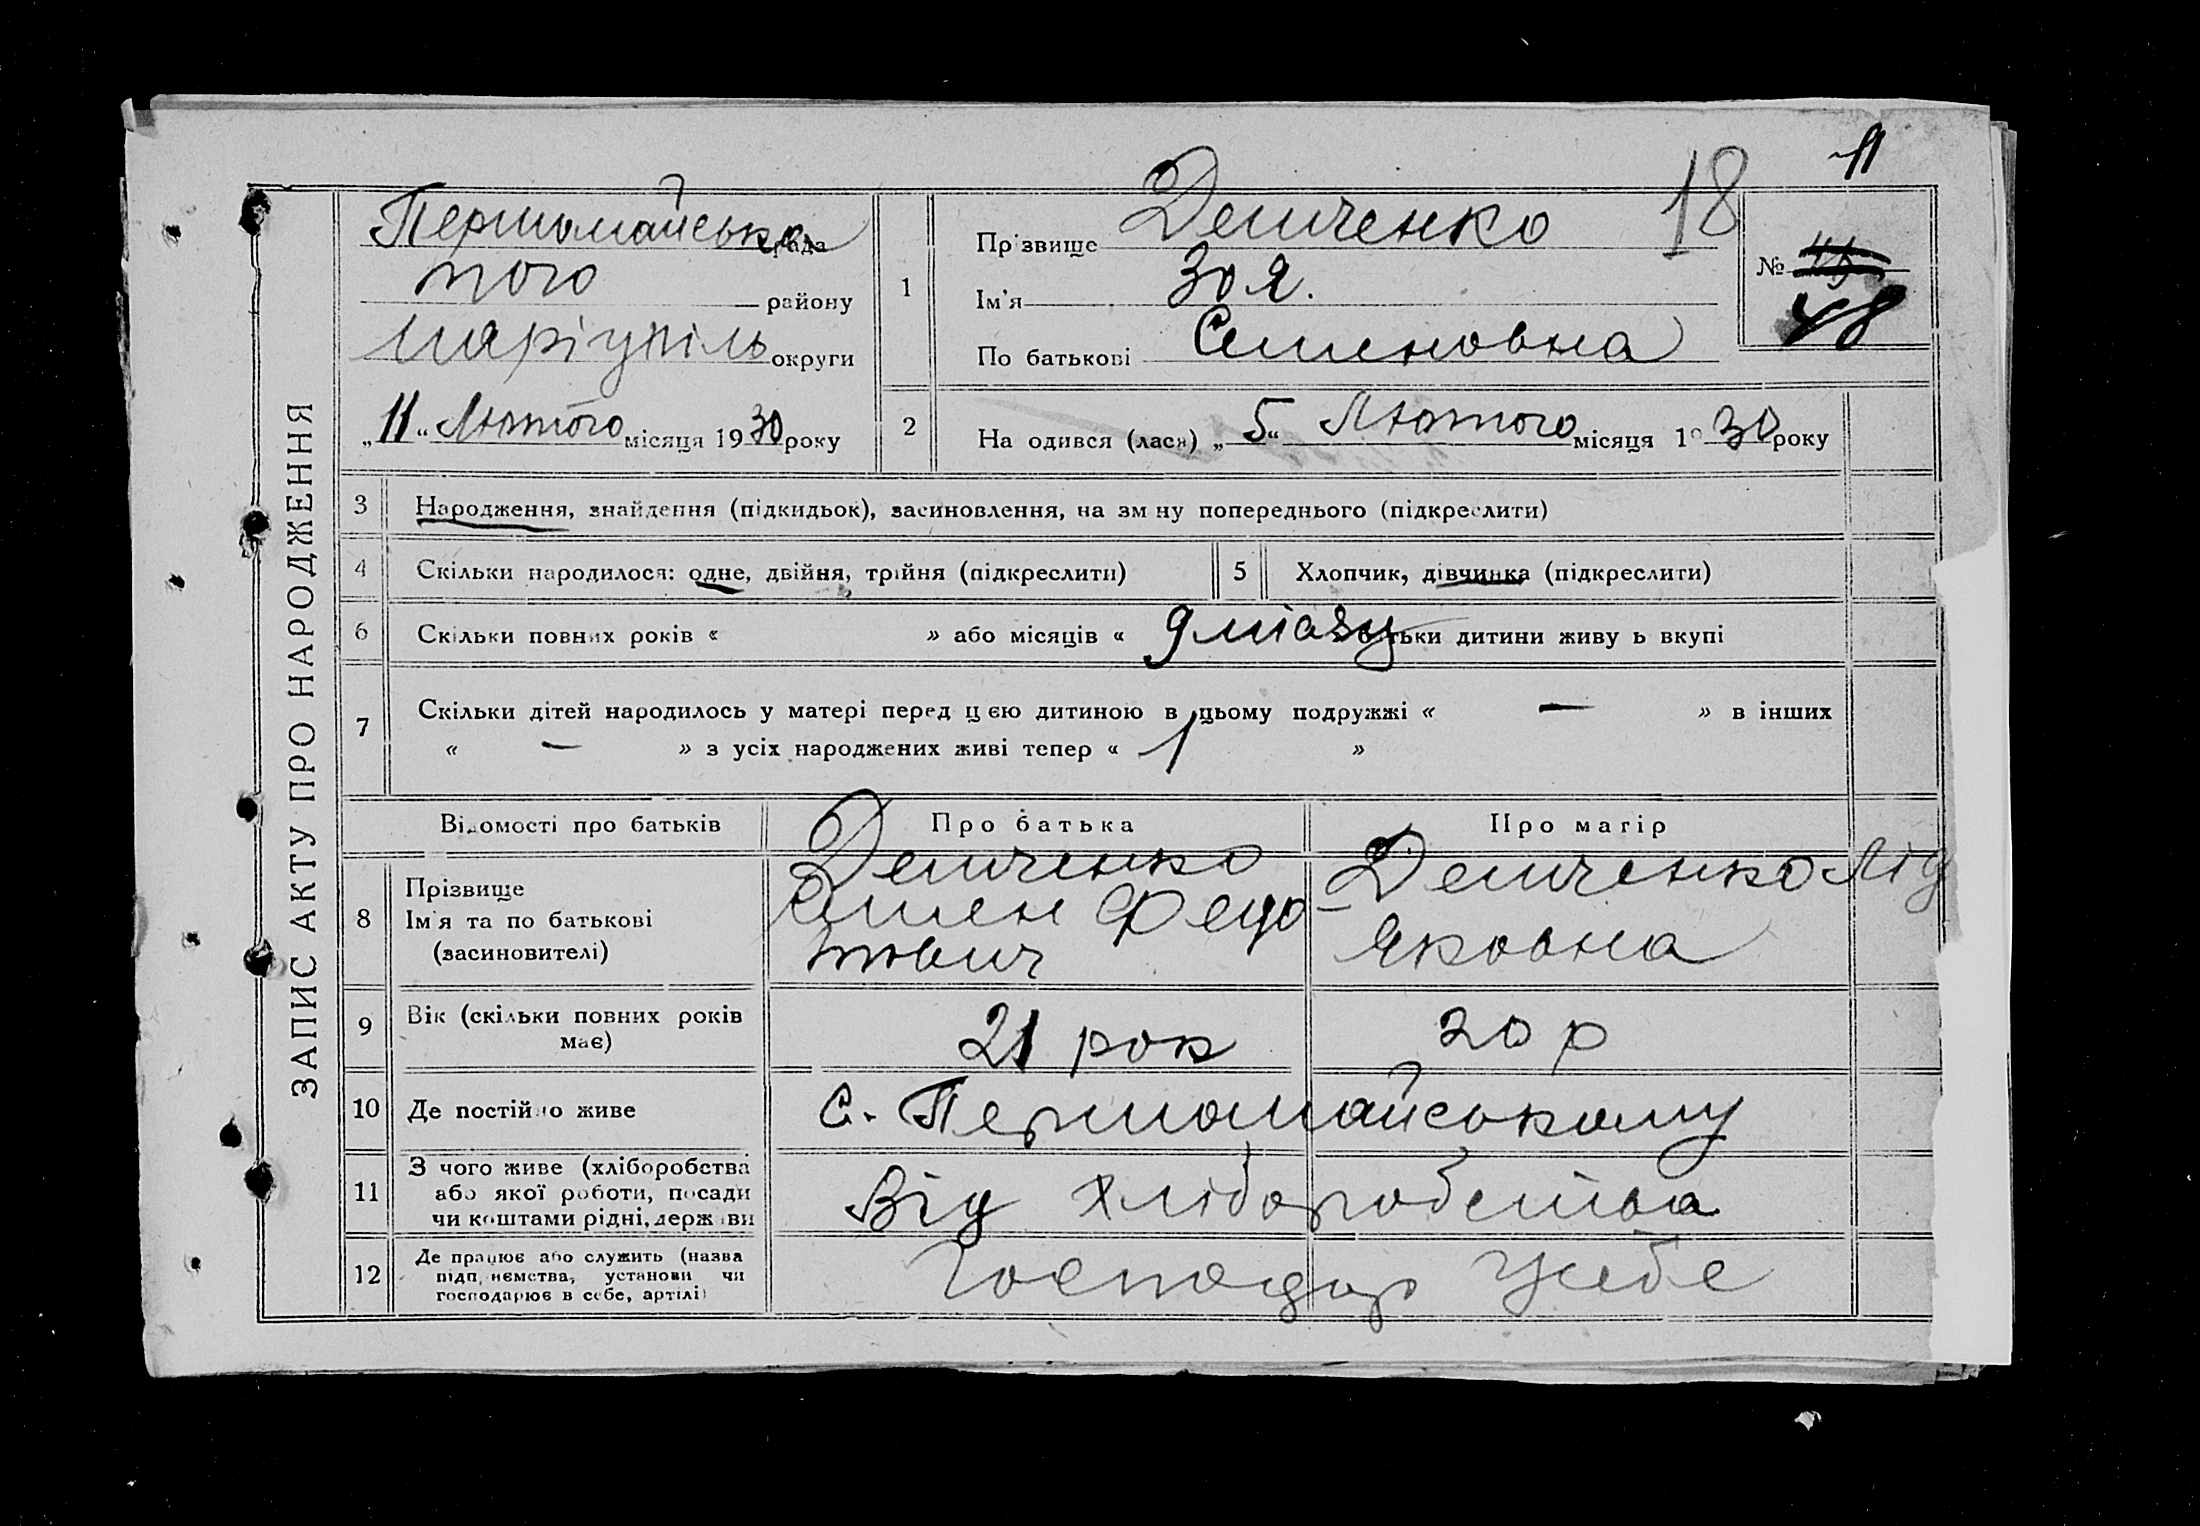 11
18
ЗАПИС АКТУ ПРО НАРОДЖЕННЯ
Першомайська рада
того району
Маріупіль округи
„11“ Лютого місяця 1930 року
1
Прізвище Демченко
Ім'я Зоя.
По батькові Семеновна
№ 48
2
На одився (лася) „5“ Лютого місяця 1930 року
3 Народження, знайдення (підкидьок), засиновлення, на зм ну попереднього (підкреслити)
4 Скільки народилося: одне, двійня, трійня (підкреслити)
5 Хлопчик, дівчинка (підкреслити)
6 Скільки повних років « » або місяців « 9 місяц батьки дитини живу ь вкупі
7 Скільки дітей народилось у матері перед цією дитиною в цьому подружжі « — » в інших
« — » з усіх народжених живі тепер « 1 »
Відомості про батьків
Про батька
Про матір
8 Прізвище
Ім'я та по батькові
(засиновителі)
Демченко
Семен Федо
тович
Демченко Лід
Яковна
9 Вік (скільки повних років
має)
21 рок
20 р
10 Де постійно живе
с. Першомайському
11 З чого живе (хліборобства
або якої роботи, посади
чи коштами рідні, держави
Від хліборобства
12 Де працює або служить (назва
підприємства, установи чи
господарює в себе, артілі)
Господар у себе